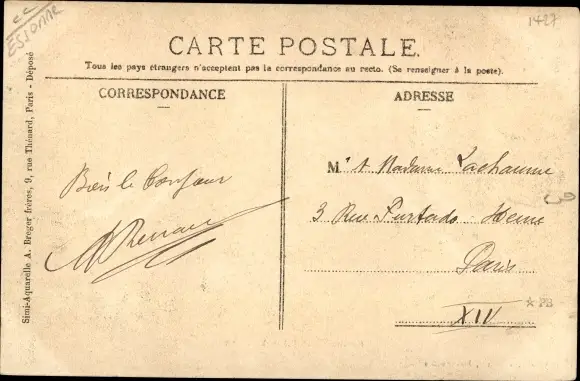 ESSONNE
1427
CARTE POSTALE.
Tous les pays étrangers n'acceptent pas la correspondance au recto. (Se renseigner à la poste).
CORRESPONDANCE
ADRESSE
Simi-Aquarelle A. Breger frères, 9, rue Thénard, Paris - Déposé
Bien le Bonjour
M. et Madame Lachaume
3 Rue Furtado-Heine
Paris
XIV